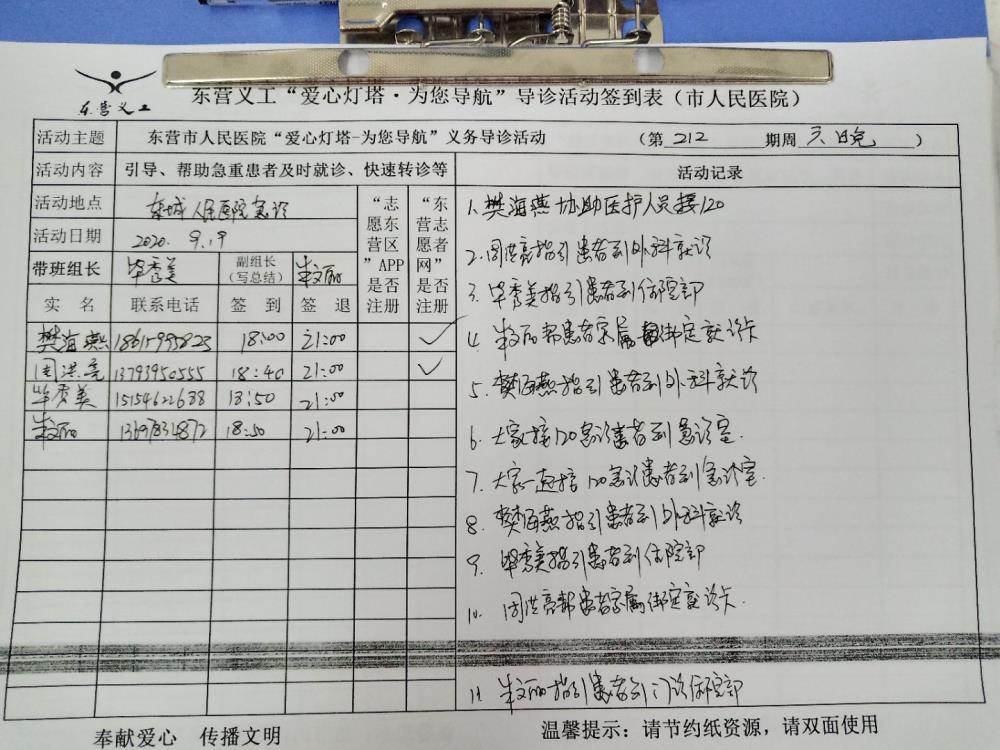 东营义工
东营义工“爱心灯塔·为您导航”导诊活动签到表（市人民医院）
活动主题 东营市人民医院“爱心灯塔-为您导航”义务导诊活动 （第 212 期周 六晚 ）
活动内容 引导、帮助急重患者及时就诊、快速转诊等
活动地点 东城人民医院急诊
活动日期 2020. 9.19
带班组长 毕秀美 副组长（写总结） 朱文丽
“志愿东营区”APP是否注册
“东营志愿者网”是否注册
实 名 联系电话 签 到 签 退
樊海燕 18615995823 18:00 21:00 ✓
周洪亮 13793950555 18:40 21:00 ✓
毕秀美 15154622638 18:50 21:00
朱文丽 18:50 21:00
活动记录
1. 樊海燕协助医护人员接120
2. 周洪亮指引患者到外科就诊
3. 毕秀美指引患者到住院部
4. 朱文丽帮患者家属绑定就诊卡
5. 樊海燕指引患者到外科就诊
6. 大家接120急诊患者到急诊室.
7. 大家一起接120急诊患者到急诊室.
8. 樊海燕指引患者到外科就诊
9. 毕秀美指引患者到住院部
10. 周洪亮帮患者家属绑定就诊卡.
11. 朱文丽指引患者到门诊住院部
奉献爱心 传播文明
温馨提示：请节约纸资源，请双面使用